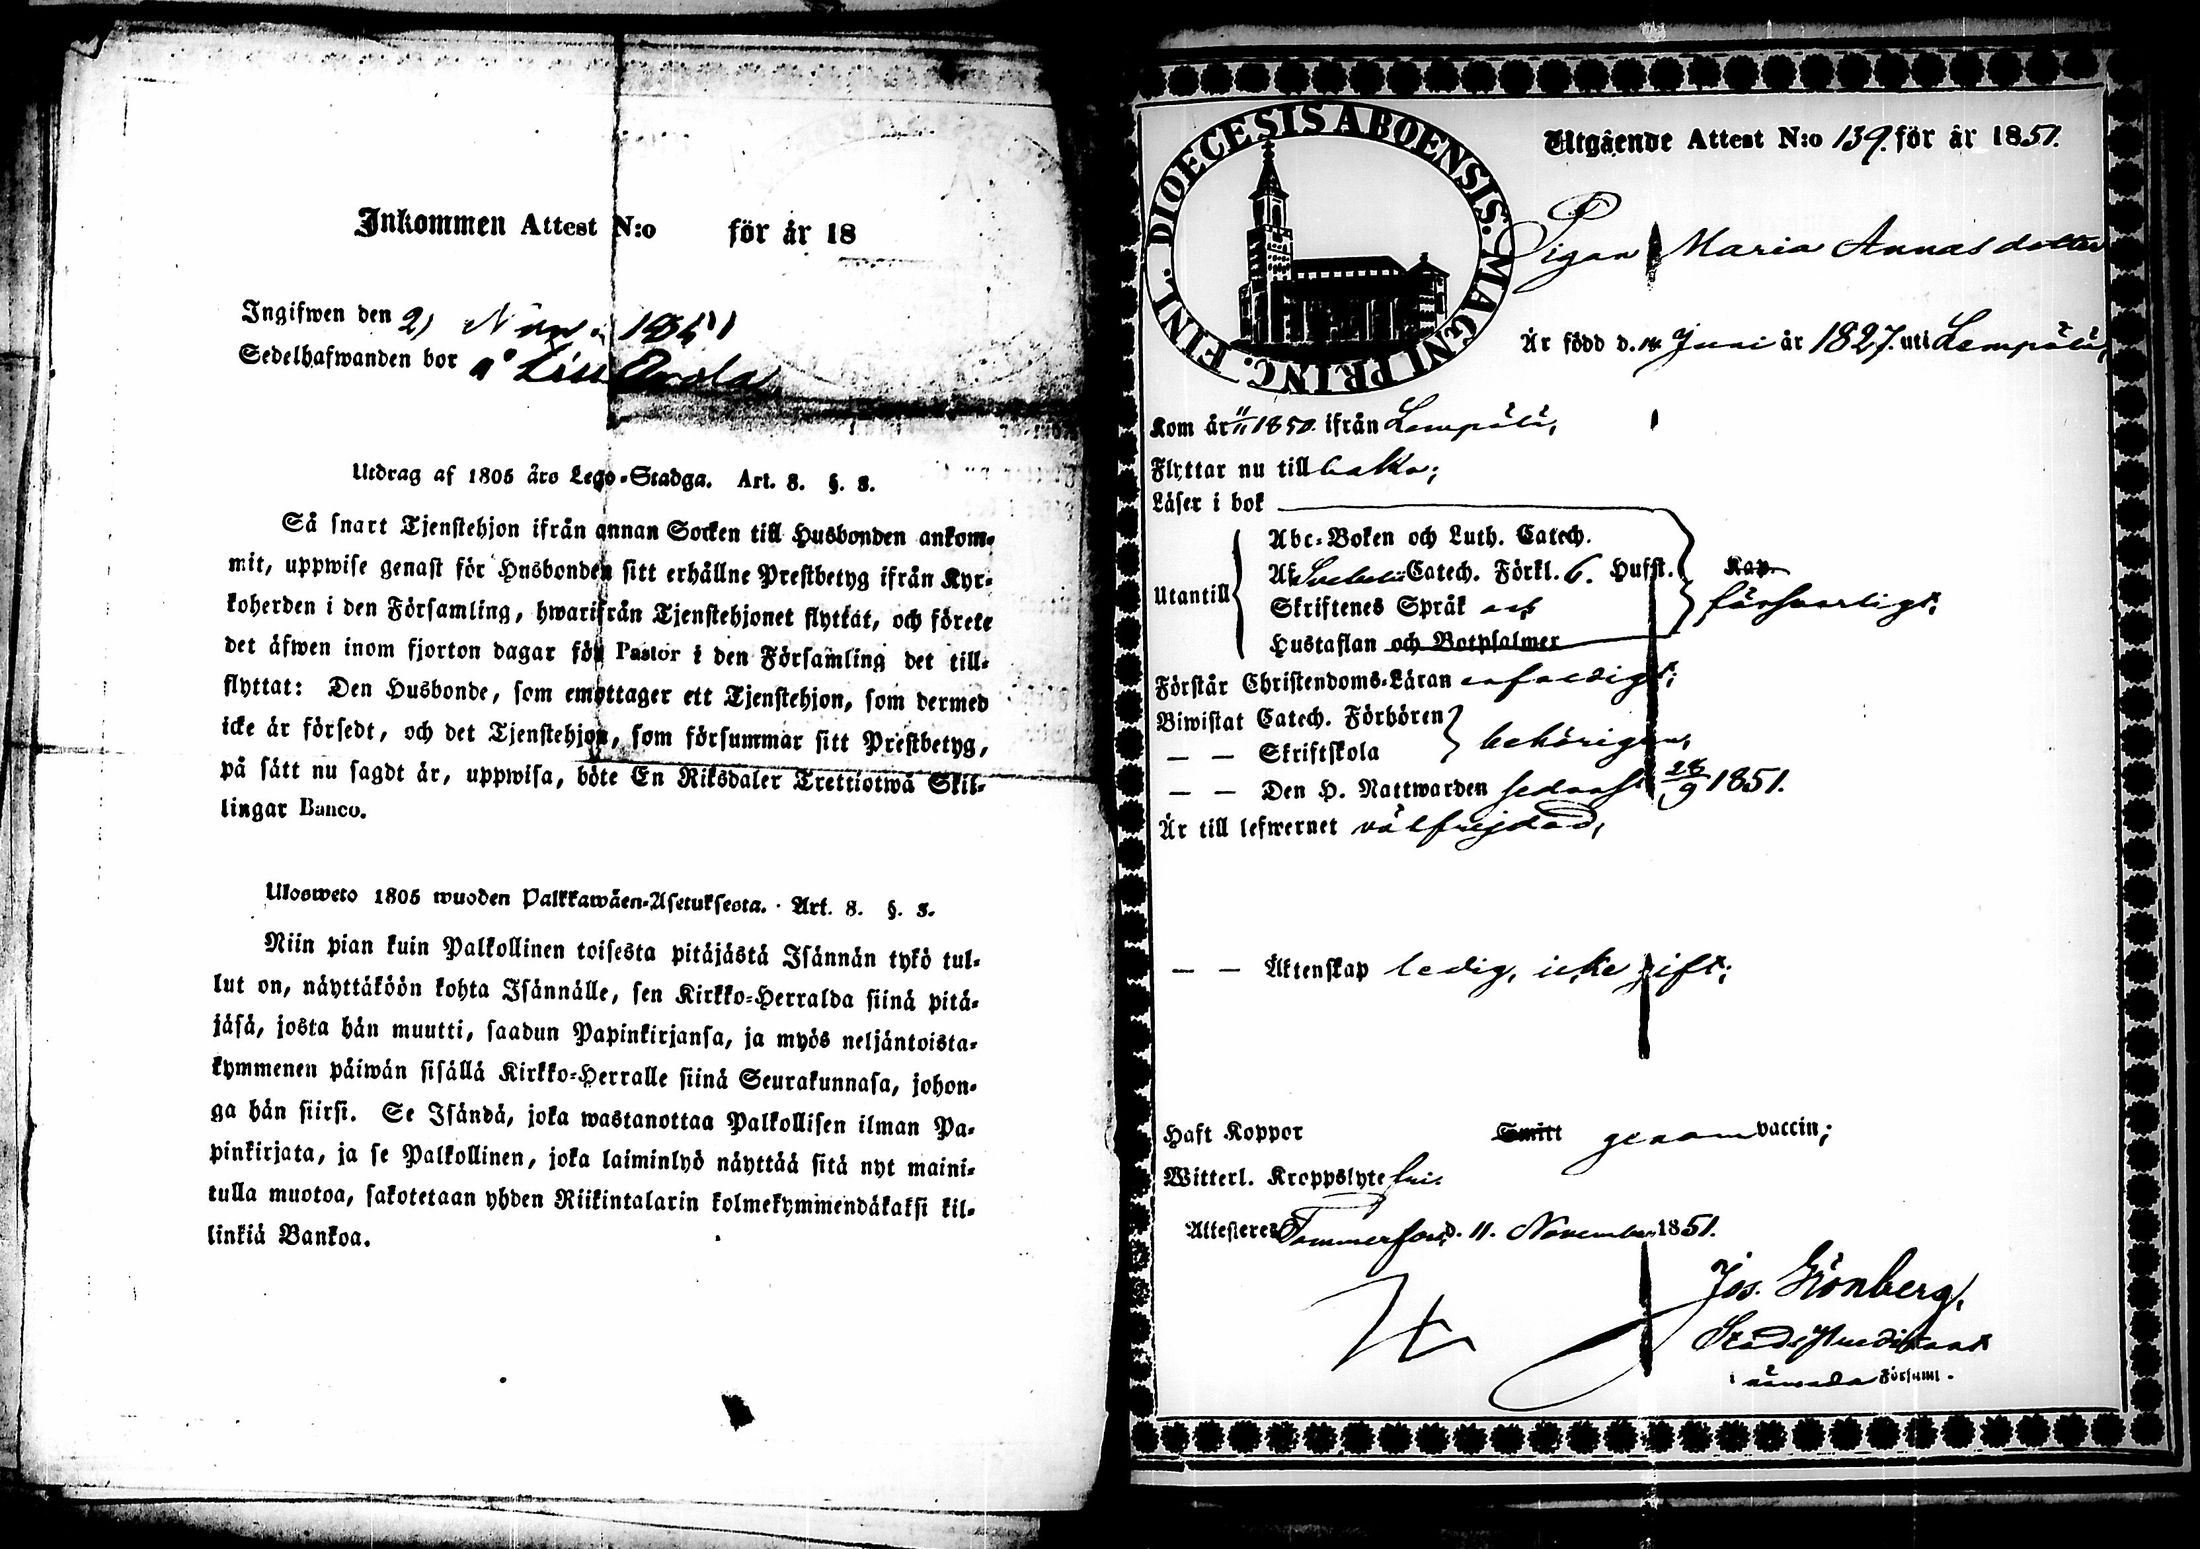 Inkommen Attest N:o för år 18
Ingifwen den 21 Nov. 1851
Sedelhafwanden bor å Lill
Utdrag af 1805 års Lego-Stadga. Art. 8. §. 3.
Så snart Tjenstehjon ifrån annan Socken till Husbonden ankom-
mit, uppwise genast för Husbonden sitt erhållne Prestbetyg ifrån Kyr-
koherden i den Församling, hwarifrån Tjenstehjonet flyttat, och förete
det äfwen inom fjorton dagar för Pastor i den Församling det till-
flyttat: Den Husbonde, som emottager ett Tjenstehjon, som dermed
icke är försedt, och det Tjenstehjon, som försummar sitt Prestbetyg,
på sätt nu sagdt är, uppwisa, böte En Riksdaler Trettiotwå Skil-
lingar Banco.
Ulosweto 1805 wuoden Palkkawäen-Asetuksesta. Art. 8. §. 3.
Niin pian kuin Palkollinen toisesta pitäjästä Isännän tykö tul-
lut on, näyttäköön kohta Isännälle, sen Kirkko-Herralda siinä pitä-
jäsä, josta hän muutti, saadun Papinkirjansa, ja myös neljäntoista-
kymmenen päiwän sisällä Kirkko-Herralle siinä Seurakunnasa, johon-
ga hän siirsi. Se Isändä, joka wastanottaa Palkollisen ilman Pa-
pinkirjata, ja se Palkollinen, joka laiminlyö näyttää sitä nyt maini-
tulla muotoa, sakotetaan yhden Riikintalarin kolmekymmendäkaksi kil-
linkiä Bankoa.
DIOECESIS ABOENSIS. MAGNI PRINC. FINL.
Utgående Attest N:o 139. för år 1851.
Pigan Maria Annasdotter
Är född d. 14 Juni år 1827. uti Lempälä,
Kom år 11/11 1850. ifrån Lempälä,
Flyttar nu till baka;
Läser i bok
Utantill
Abc-Boken och Luth. Catech.
Af Svebelii Catech. Förkl. 6. Hufst.
Skriftenes Språk och
Hustaflan och Botpsalmer
Kap.
försvarligt;
Förstår Christendoms-Läran enfaldigt;
Biwistat Catech. Förhören
— — Skriftskola
behörigen,
— — Den H. Nattwarden sednast 28/9 1851.
Är till lefwernet välfrejdad,
— — Äktenskap ledig, icke gift;
Haft Koppor Smitt genom vaccin;
Witterl. Kroppslyte fri.
Attesteres Tammerfors d. 11. November 1851.
Jos. Grönberg,
Stadspredikant
i nämnda Församl.